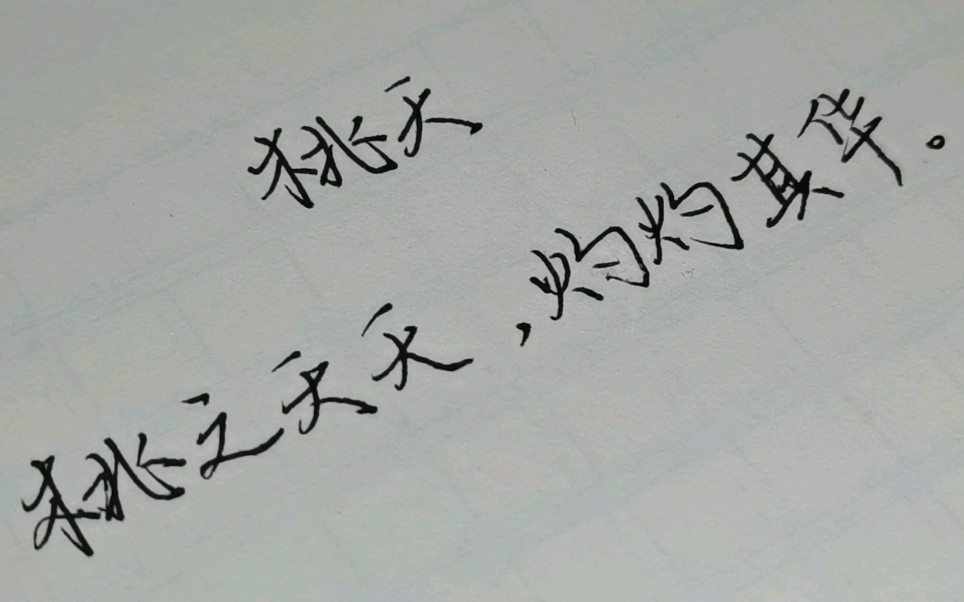 桃夭
桃之夭夭，灼灼其华。